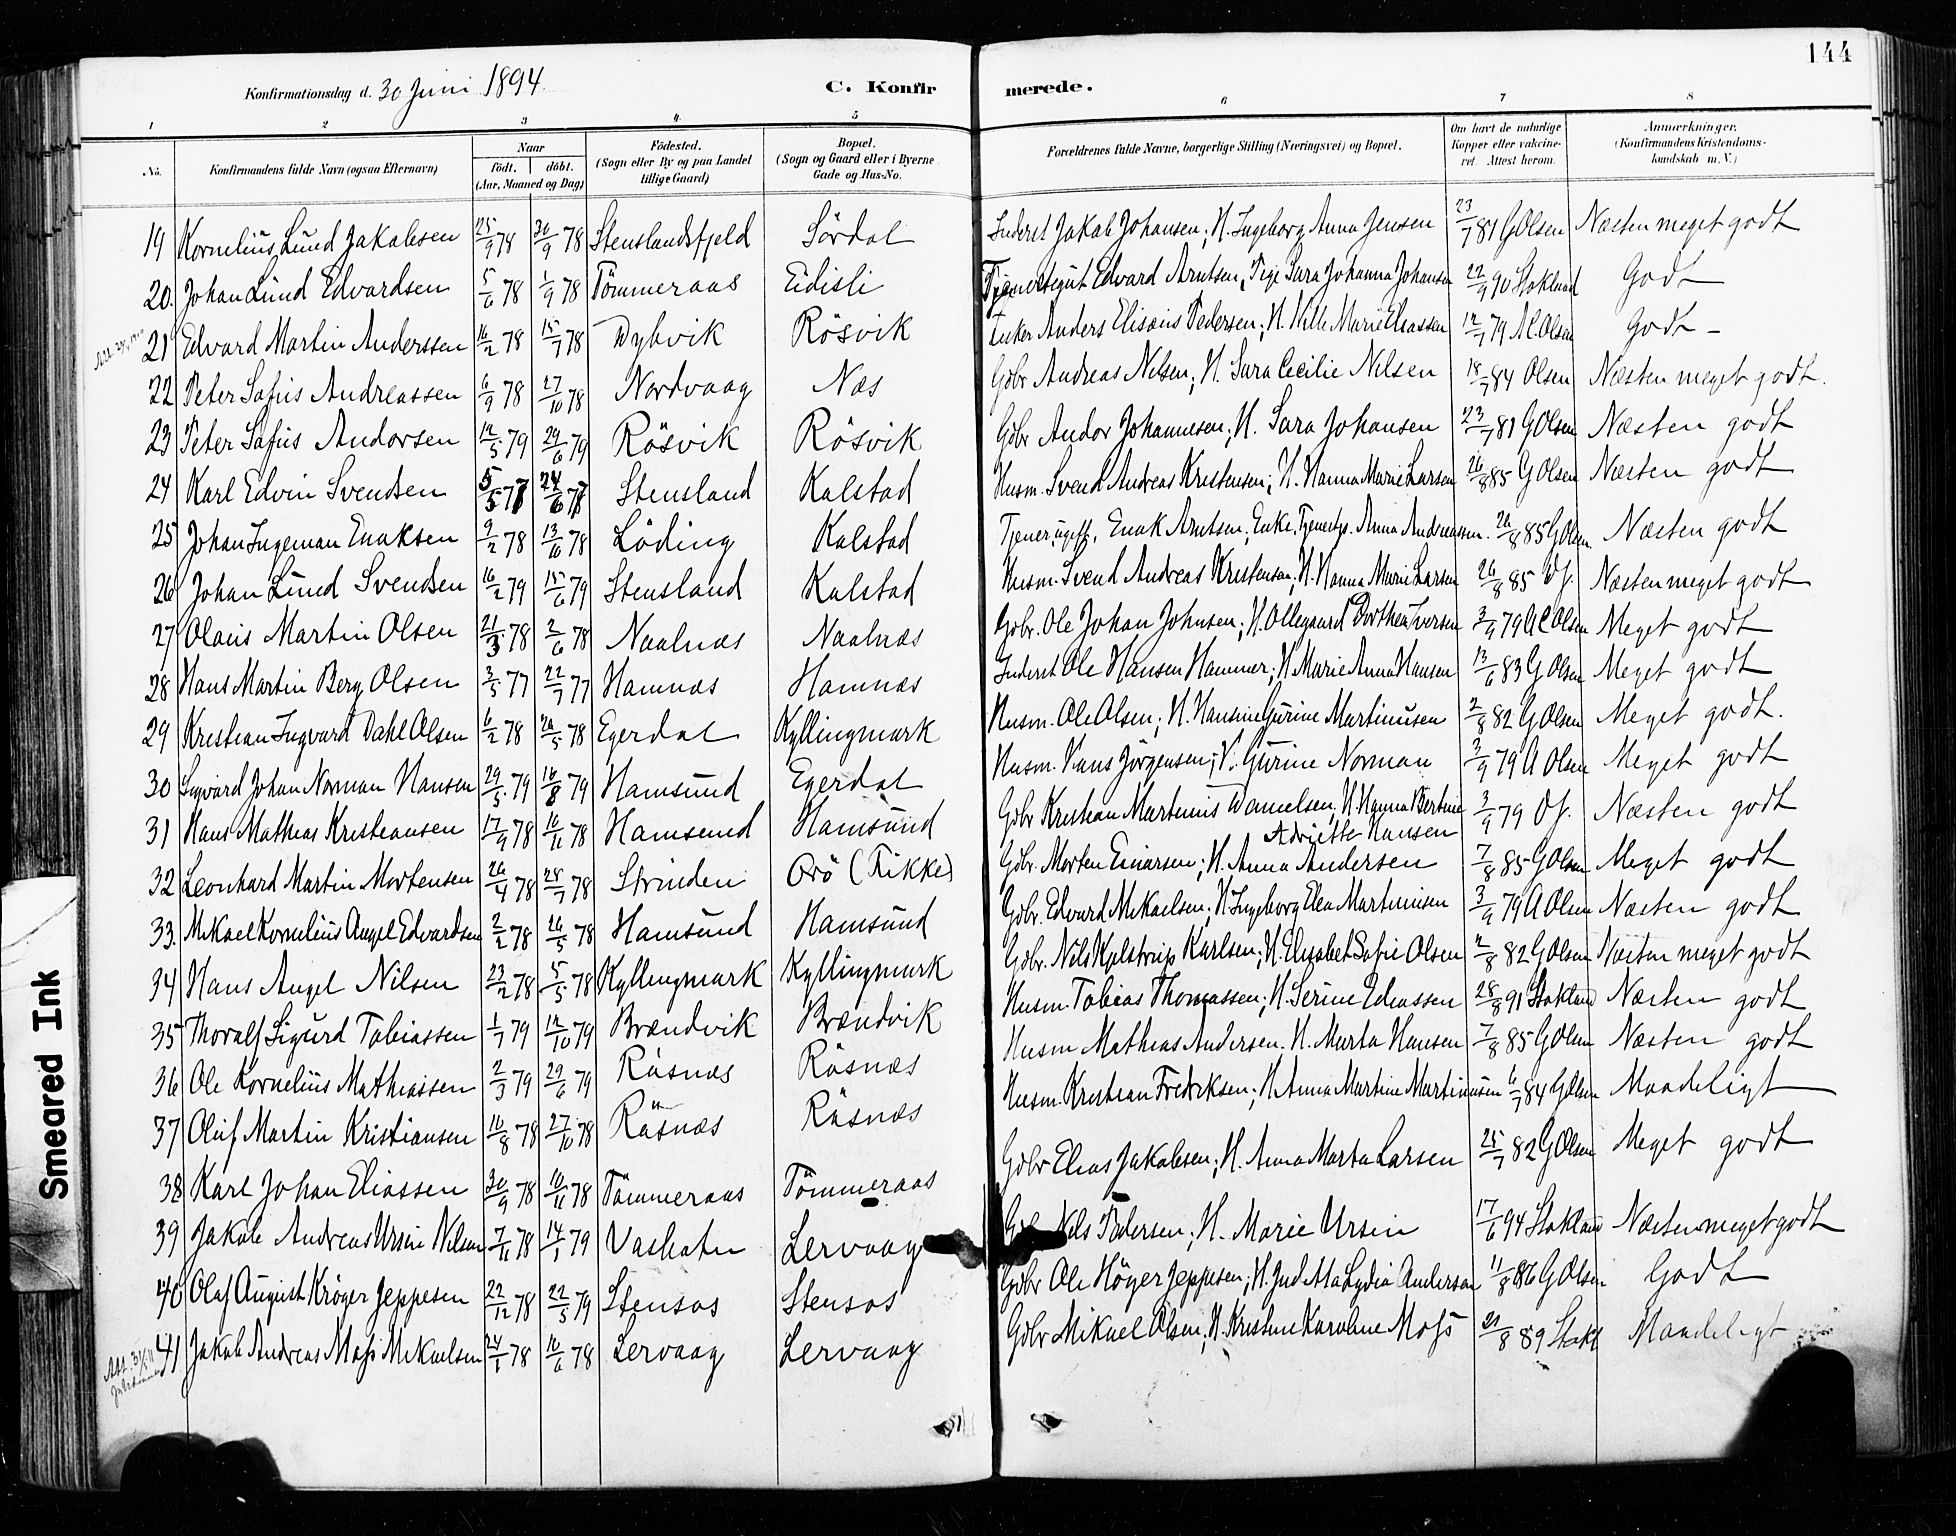 144
Konfirmationsdag d. 30 Juni 1894. C. Konfirmerede.
1 2 3 4 5 6 7 8
No. Konfirmandens fulde Navn (ogsaa Efternavn) Naar født. døbt. (Aar, Maaned og Dag) Födested. (Sogn eller By og paa Landet tillige Gaard) Bopæl. (Sogn og Gaard eller i Byerne Gade og Hus-No. Forældrenes fulde Navne, borgerlige Stilling (Næringsvei) og Bopæl. Om havt de naturlige Kopper eller vaccineret. Attest herom. Anmærkninger. (Konfirmandens Kristendomskundskab m. V.)
19 Kornelius Lund Jakobsen 25/9 78 30/9 78 Stenslandsfjeld Sördal Inderst Jakob Johansen; H. Ingeborg Anna Jensen 23/7 81 G Olsen Næsten meget godt
20. Johan Lund Edvardsen 5/6 78 1/9 78 Tömmeraas Eidisli Tjenestegut Edvard Arntsen, Pige Sara Johanna Johansen 22/9 90 Stokland Godt
21 Edvard Martin Anderssen 16/2 78 15/7 78 Dybvik Rösvik Anders Elisæus Pedersen; H. Marie Eliassen 12/7 79 A C Olsen Godt
22 Peter Sofus Andreassen 6/9 78 27/10 78 Nordvaag Næs Gdbr. Andreas Nilsen; H. Sara Cecilie Nilsen 18/7 84 Olsen Næsten meget godt.
23 Peter Sofus Andorsen 12/5 79 29/6 79 Rösvik Rösvik Gdbr Andor Johannesen; H. Sara Johansen 23/7 81 G Olsen Næsten godt
24 Karl Edvin Svendsen 5/5 77 24/6 77 Stensland Kalstad Husm. Svend Andreas Kristensen; H. Hanna Marie Larsen 26/8 85 G Olsen Næsten godt
25 Johan Ingeman Enoksen 9/2 78 13/10 78 Löding Kalstad Tjener, ugift, Enok Arntsen, Enke, Anna Andreassen. 26/8 85 G Olsen Næsten godt
26 Johan Lund Svendsen 16/2 79 15/6 79 Stensland Kalstad Husm. Svend Andreas Kristensen, H. Hanna Marie Larsen 26/8 85 Næsten meget godt
27 Olaus Martin Olsen 21/3 78 2/6 78 Naalnæs Naalnæs Gdbr. Ole Johan Johnsen; H. Ollegaard Dorthea Iversen 3/9 79 A C Olsen Meget godt
28 Hans Martin Berg Olsen 3/5 77 22/7 77 Hamnæs Hamnæs Inderst Ole Hansen Hammer; H. Marie Anna Hansen 13/6 83 G Olsen Meget godt
29 Kristian Ingvard Dahl Olsen 6/2 78 26/5 78 Egerdal Kyllingmark Husm. Ole Olsen; H. Hansine Gurine Martinusen 2/8 82 G Olsen Meget godt.
30 Sigvard Johan Norman Hansen 29/5 79 16/8 79 Hamsund Egerdal Husm. Hans Jörgensen; H. Gurine Norman 3/9 79 A Olsen Meget godt
31 Hans Mathias Kristiansen 17/9 78 10/11 78 Hamsund Hamsund Gdbr Kristian Martinus Danielsen; H. Hanna Bertine Adriette Hansen 3/9 79 Næsten godt
32 Leonhard Martin Mortensen 26/4 78 28/7 78 Strinden Orö (Tikke) Gdbr. Morten Einarsen; H. Anna Andersen 7/8 85 G Olsen Meget godt
33. Mikael Kornelius Angel Edvardsen 2/2 78 26/5 78 Hamsund Hamsund Gdbr. Edvard Mikaelsen; H. Ingeborg Elea Martinusen 3/9 79 A Olsen Næsten godt
34 Hans Angel Nilsen 23/2 78 5/5 78 Kyllingmark Kyllingmark Gdbr. Nils Kjelstrup Karlsen; H. Elisabet Sofie Olsen 2/8 82 G Olsen Næsten meget godt
35 Thoralf Sigurd Tobiassen 1/7 79 12/10 79 Brændvik Brændvik Husm. Tobias Thomassen; H. Serine Eliassen 28/8 91 Stokland Næsten godt
36 Ole Kornelius Mathiassen 2/3 79 29/6 79 Råsnæs Råsnæs Husm Mathias Andersen. H. Marta Hansen 7/8 85 G Olsen Næsten godt
37 Oluf Martin Kristiansen 16/8 78 27/10 78 Råsnæs Råsnæs Husm. Kristian Fredriksen; H. Anna Martine Martinusen 6/7 84 G Olsen Maadeligt
38 Karl Johan Eliassen 30/9 78 10/11 78 Tömmeraas Tömmeraas Gdbr Elias Jakobsen; H. Anna Marta Larsen 25/7 82 G Olsen Meget godt
39 Jakob Andreas Ursin Nilsen 7/11 78 14/1 79 Vasbotn Lervaag Nils Pedersen; H. Marie Ursin 17/6 94 Stokland Næsten meget godt
40 Olaf August Kröyer Jeppesen 22/12 78 22/5 79 Stensos Stensos Gdbr Ole Höyer Jeppesen; H. Juditta Lydia Andersen 11/8 86 G Olsen Godt
41 Jakob Andreas Moss Mikaelsen 24/1 78 10/6 78 Lervaag Lervaag Gdbr Mikael Olsen, H. Kristine Karoline Moss 21/8 89 Stokl Maadeligt
Smeared Ink